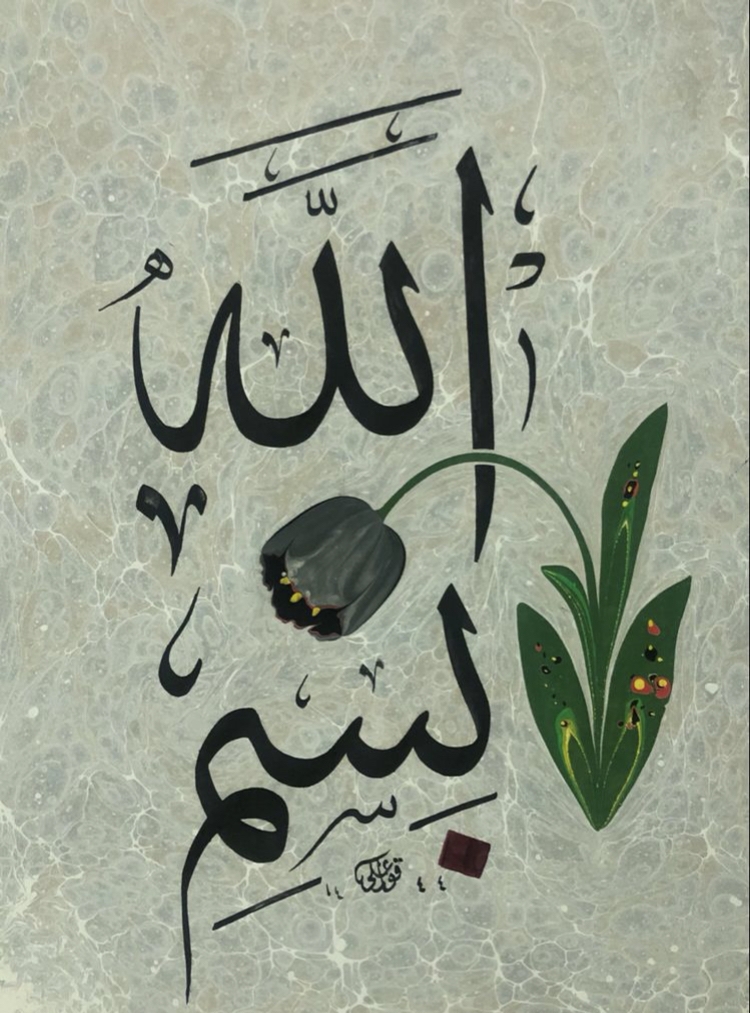 بِسْمِ
اللّٰه